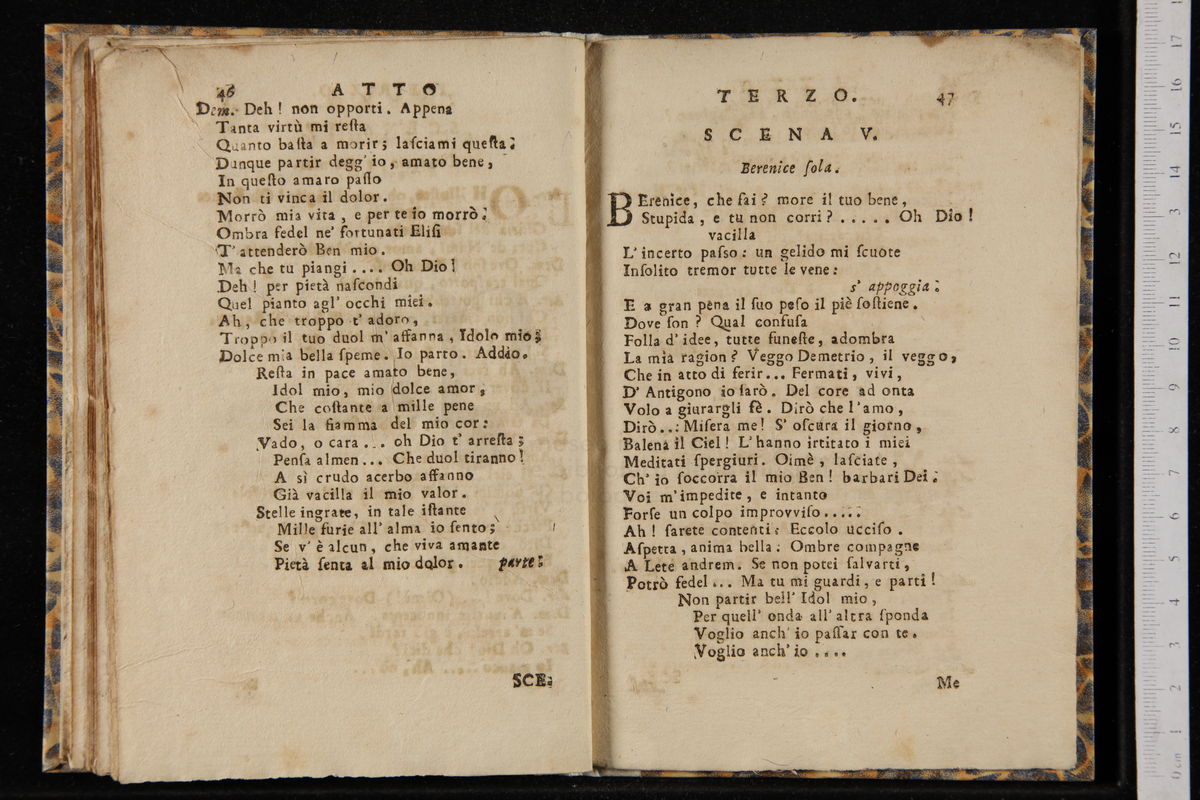 46 ATTO
Dem. Deh! non opporti. Appena
Tanta virtù mi reſta
Quanto baſta a morir; laſciami queſta.
Dunque partir degg' io, amato bene,
In queſto amaro paſſo
Non ti vinca il dolor.
Morrò mia vita, e per te io morrò.
Ombra fedel ne' fortunati Eliſi
T' attenderò Ben mio.
Ma che tu piangi .... Oh Dio!
Deh! per pietà naſcondi
Quel pianto agl' occhi miei.
Ah, che troppo t' adoro,
Troppo il tuo duol m' affanna, Idolo mio;
Dolce mia bella ſpeme. Io parto. Addio.
Reſta in pace amato bene,
Idol mio, mio dolce amor,
Che coſtante a mille pene
Sei la fiamma del mio cor:
Vado, o cara ... oh Dio t' arreſta;
Penſa almen ... Che duol tiranno!
A sì crudo acerbo affanno
Già vacilla il mio valor.
Stelle ingrate, in tale iſtante
Mille furie all' alma io ſento;
Se v' è alcun, che viva amante
Pietà ſenta al mio dolor. parte.
SCE-
TERZO. 47
SCENA V.
Berenice ſola.
BErenice, che fai? more il tuo bene,
Stupida, e tu non corri? ..... Oh Dio!
vacilla
L' incerto paſso: un gelido mi ſcuote
Inſolito tremor tutte le vene:
s' appoggia.
E a gran pena il ſuo peſo il piè ſoſtiene.
Dove ſon? Qual confuſa
Folla d' idee, tutte funeſte, adombra
La mia ragion? Veggo Demetrio, il veggo,
Che in atto di ferir... Fermati, vivi,
D' Antigono io ſarò. Del core ad onta
Volo a giurargli fè. Dirò che l' amo,
Dirò... Miſera me! S' oſcura il giorno,
Balena il Ciel! L' hanno irtitato i miei
Meditati ſpergiuri. Oimè, laſciate,
Ch' io ſoccorra il mio Ben! barbari Dei.
Voi m' impedite, e intanto
Forſe un colpo improvviſo.....
Ah! ſarete contenti: Eccolo ucciſo.
Aſpetta, anima bella: Ombre compagne
A Lete andrem. Se non potei ſalvarti,
Potrò fedel ... Ma tu mi guardi, e parti!
Non partir bell' Idol mio,
Per quell' onda all' altra ſponda
Voglio anch' io paſſar con te.
Voglio anch' io ....
Me